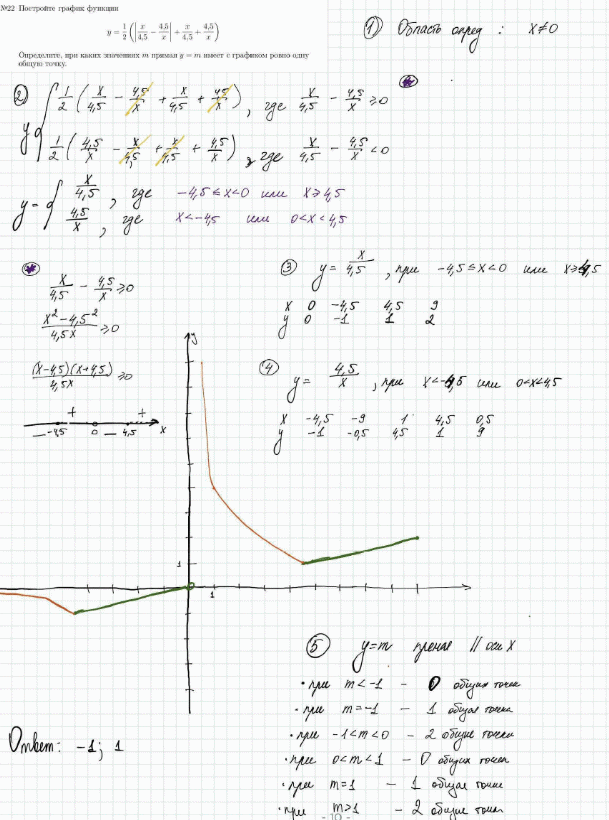 №22 Постройте график функции
y = 1/2 (|x/4,5 − 4,5/x| + x/4,5 + 4,5/x)
Определите, при каких значениях m прямая y = m имеет с графиком ровно одну
общую точку.
① Область опред : x≠0
② y { 1/2 (x/4,5 − 4,5/x + x/4,5 + 4,5/x) , где x/4,5 − 4,5/x ≥0
1/2 (4,5/x − x/4,5 + x/4,5 + 4,5/x) , где x/4,5 − 4,5/x <0
y = { x/4,5 , где −4,5 ≤ x<0 или x≥4,5
4,5/x , где x<−4,5 или 0<x<4,5
*
x/4,5 − 4,5/x ≥0
x²−4,5²/4,5x ≥0
(x−4,5)(x+4,5)/4,5x ≥0
+ +
— −4,5 0 — 4,5 x
③ y = x/4,5 , при −4,5≤x<0 или x≥4,5
x 0 −4,5 4,5 9
y 0 −1 1 2
④ y = 4,5/x , при x<−4,5 или 0<x<4,5
x −4,5 −9 1 4,5 0,5
y −1 −0,5 4,5 1 9
y
1
1
⑤ y=m прямая // оси X
• при m<−1 − 0 общих точек
• при m=−1 − 1 общая точка
• при −1<m<0 − 2 общие точки
• при 0<m<1 − 0 общих точек
• при m=1 − 1 общая точка
• при m>1 − 2 общие точки
Ответ: −1; 1
- 10 -